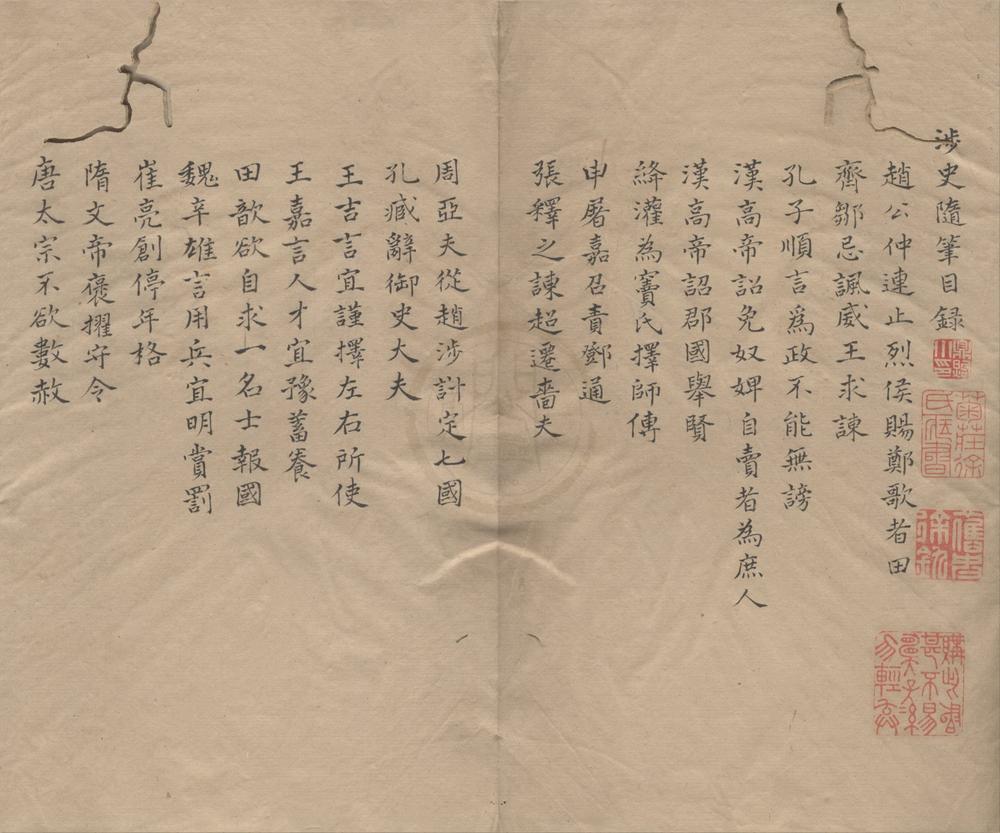 涉史隨筆目録
趙公仲連止烈侯賜鄭歌者田
齊鄒忌諷威王求諫
孔子順言爲政不能無謗
漢高帝詔免奴婢自賣者為庶人
漢高帝詔郡國舉賢
絳灌為竇氏擇師傅
申屠嘉召責鄧通
張釋之諫超遷嗇夫
周亞夫從趙涉計定七國
孔臧辭御史大夫
王吉言宜謹擇左右所使
王嘉言人才宜豫蓄養
田歆欲自求一名士報國
魏辛雄言用兵宜明賞罰
崔亮創停年格
隋文帝褒擢守令
唐太宗不欲數赦
菊莊徐氏藏書
舊史徐釚
購此書甚不易遺子孫勿輕棄